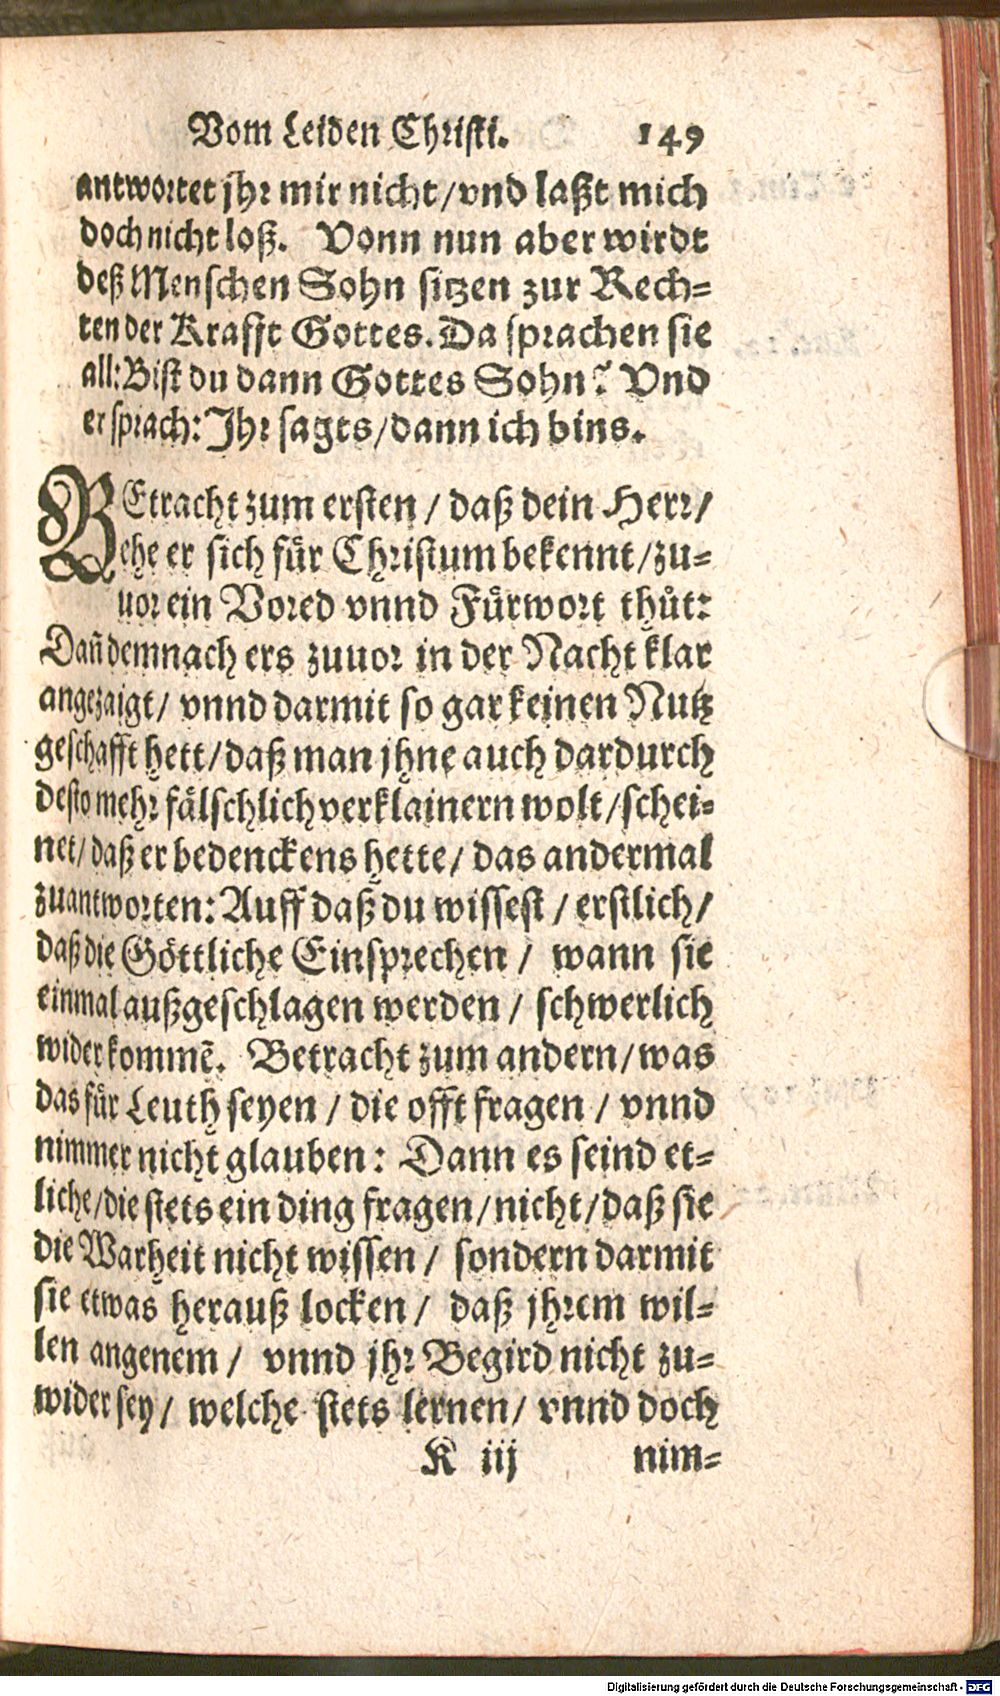 Vom Leiden Christi. 149
antwortet jhr mir nicht/vnd laßt mich
doch nicht loß. Vonn nun aber wirdt
deß Menschen Sohn sitzen zur Rech=
ten der Krafft Gottes. Da sprachen sie
all: Bist du dann Gottes Sohn? Vnd
er sprach: Jhr sagts/dann ich bins.
BEtracht zum ersten / daß dein Herr/
ehe er sich für Christum bekennt/zu=
uor ein Vored vnnd Fürwort thůt:
Dañ demnach ers zuuor in der Nacht klar
angezaigt/ vnnd darmit so gar keinen Nutz
geschafft hett/daß man jhne auch dardurch
desto mehr fälschlich verklainern wolt/schei=
net/daß er bedenckens hette/ das andermal
zuantworten: Auff daß du wissest / erstlich/
daß die Göttliche Einsprechen / wann sie
einmal außgeschlagen werden / schwerlich
wider kommẽ. Betracht zum andern/was
das für Leuth seyen / die offt fragen / vnnd
nimmer nicht glauben: Dann es seind et=
liche/die stets ein ding fragen/nicht/daß sie
die Warheit nicht wissen / sondern darmit
sie etwas herauß locken / daß jhrem wil=
len angenem / vnnd jhr Begird nicht zu=
wider sey / welche stets lernen/ vnnd doch
K iij nim=
Digitalisierung gefördert durch die Deutsche Forschungsgemeinschaft - DFG